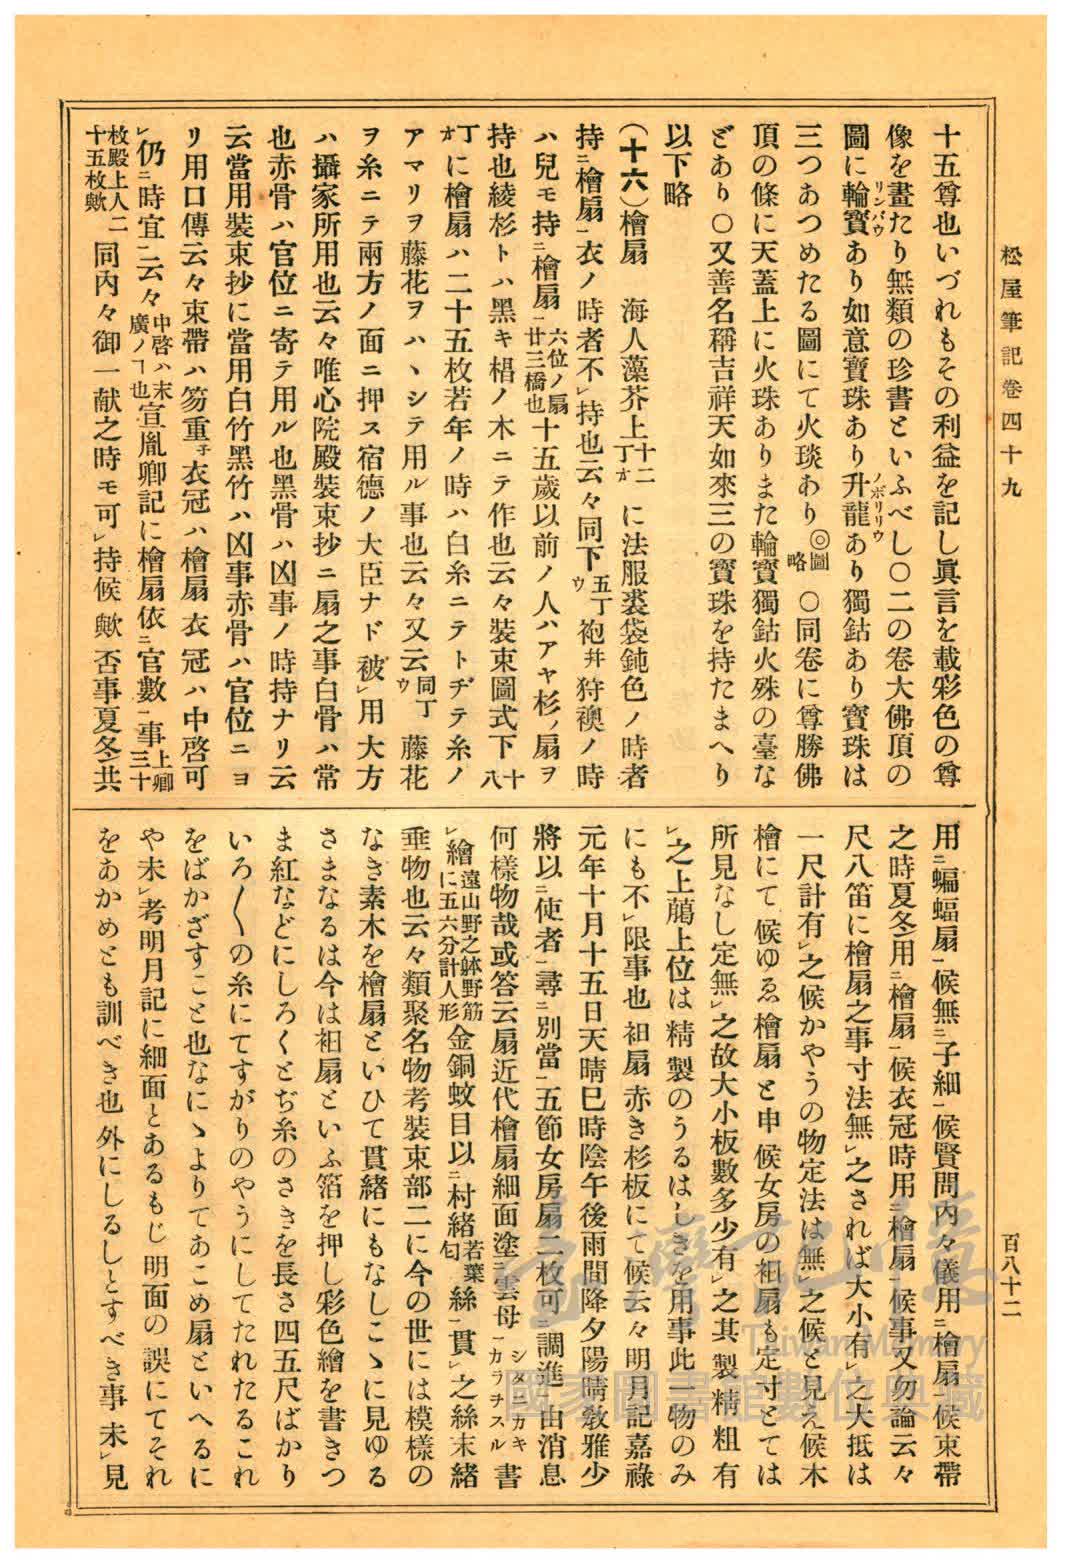 松屋筆記卷四十九
百八十二
十五尊也いづれもその利益を記し眞言を載彩色の尊
像を畫たり無類の珍書といふべし○二の卷大佛頂の
圖に輪寳リンバウあり如意寳珠あり升龍ノボリリウあり獨鈷あり寳珠は
三つあつめたる圖にて火琰あり◎圖略 ○同卷に尊勝佛
頂の條に天蓋上に火珠ありまた輪寳獨鈷火殊の臺な
どあり○又善名稱吉祥天如來三の寳珠を持たまへり
以下略
(十六)檜扇 海人藻芥上十二丁オに法服裘袋鈍色ノ時者
持ニ檜扇一衣ノ時者不レ持也云々同下五丁ウ袍幷狩襖ノ時
ハ兒モ持ニ檜扇一六位ノ扇廿三橋也十五歲以前ノ人ハアヤ杉ノ扇ヲ
持也綾杉トハ黑キ椙ノ木ニテ作也云々裝束圖式下十八
丁オに檜扇ハ二十五枚若年ノ時ハ白糸ニテトヂテ糸ノ
アマリヲ藤花ヲハヽシテ用ル事也云々又云同丁ウ 藤花
ヲ糸ニテ兩方ノ面ニ押ス宿德ノ大臣ナド被レ用大方
ハ攝家所用也云々唯心院殿裝束抄ニ扇之事白骨ハ常
也赤骨ハ官位ニ寄テ用ル也黑骨ハ凶事ノ時持ナリ云
云當用裝束抄に當用白竹黑竹ハ凶事赤骨ハ官位ニヨ
リ用口傳云々束帶ハ笏重ネ衣冠ハ檜扇衣冠ハ中啓可
レ仍ニ時宜一云々中啓ハ末廣ノヿ也宣胤卿記に檜扇依ニ官數一事上卿三十
枚殿上人二十五枚歟 同內々御一献之時モ可レ持候歟否事夏冬共
用ニ蝙蝠扇一候無ニ子細一候賢問內々儀用ニ檜扇一候束帶
之時夏冬用ニ檜扇一候衣冠時用ニ檜扇一候事又勿論云々
尺八笛に檜扇之事寸法無レ之されば大小有レ之大抵は
一尺計有レ之候かやうの物定法は無レ之候と見え候木
檜にて候ゆゑ檜扇と申候女房の衵扇も定寸とては
所見なし定無レ之故大小板數多少有レ之其製精粗有
レ之上﨟上位は精製のうるはしきを用事此一物のみ
にも不レ限事也衵扇赤き杉板にて候云々明月記嘉祿
元年十月十五日天晴巳時陰午後雨間降夕陽晴敎雅少
將以ニ使者一尋ニ別當一五節女房扇二枚可ニ調進一由消息
何樣物哉或答云扇近代檜扇細面塗ニ雲母一シタニカキカラチスル書
レ繪遠山野之躰野筋に五六分計人形金銅蚊目以ニ村緖若葉匂絲一貫レ之絲末緖
垂物也云々類聚名物考裝束部二に今の世には模樣の
なき素木を檜扇といひて貫緖にもなしこゝに見ゆる
さまなるは今は衵扇といふ箔を押し彩色繪を書きつ
ま紅などにしろくとぢ糸のさきを長さ四五尺ばかり
いろ〱の糸にてすがりのやうにしてたれたるこれ
をばかざすこと也なにゝよりてあこめ扇といへるに
や未レ考明月記に細面とあるもじ明面の誤にてそれ
をあかめとも訓べき也外にしるしとすべき事未レ見
臺灣記憶
Taiwan Memory
國家圖書館數位典藏